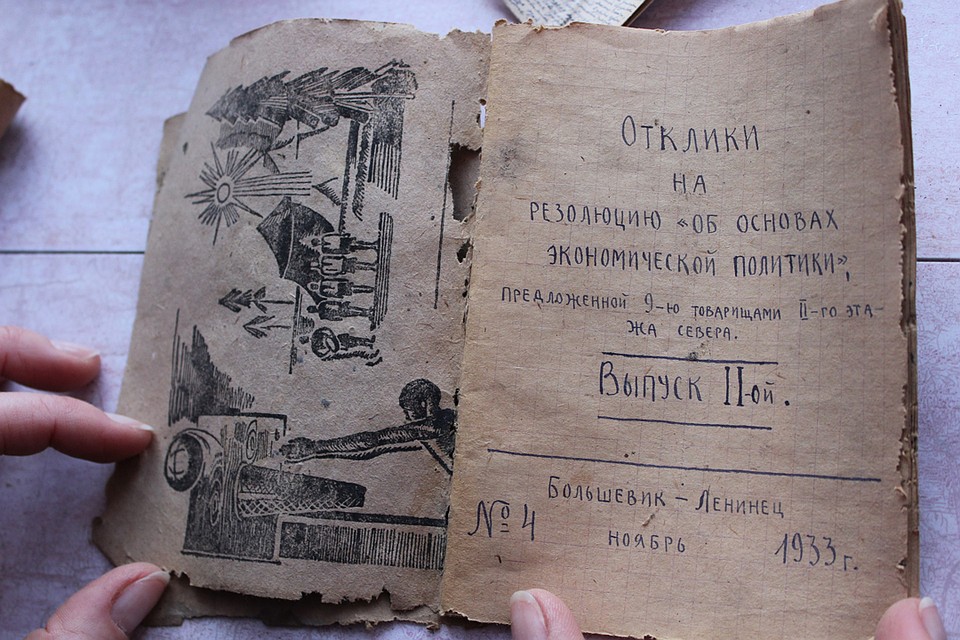 ОТКЛИКИ
НА
РЕЗОЛЮЦИЮ «ОБ ОСНОВАХ
ЭКОНОМИЧЕСКОЙ ПОЛИТИКИ»,
ПРЕДЛОЖЕННОЙ 9-Ю ТОВАРИЩАМИ II-ГО ЭТА-
ЖА СЕВЕРА.
ВЫПУСК II-ОЙ.
БОЛЬШЕВИК – ЛЕНИНЕЦ
№ 4
НОЯБРЬ
1933 г.